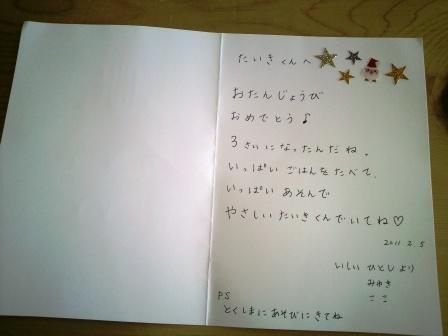 たいきくんへ
おたんじょうび
おめでとう♪
3さいになったんだね。
いっぱいごはんをたべて、
いっぱいあそんで
やさしいたいきくんでいてね♡
2011.2.5
いしいひとしより
みゆき
ここ
PS
とくしまにあそびにきてね